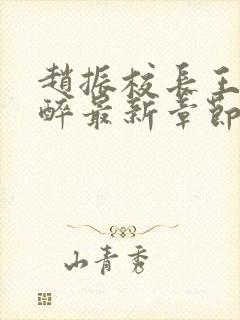 趙振校長王
醉最新章節
山青秀